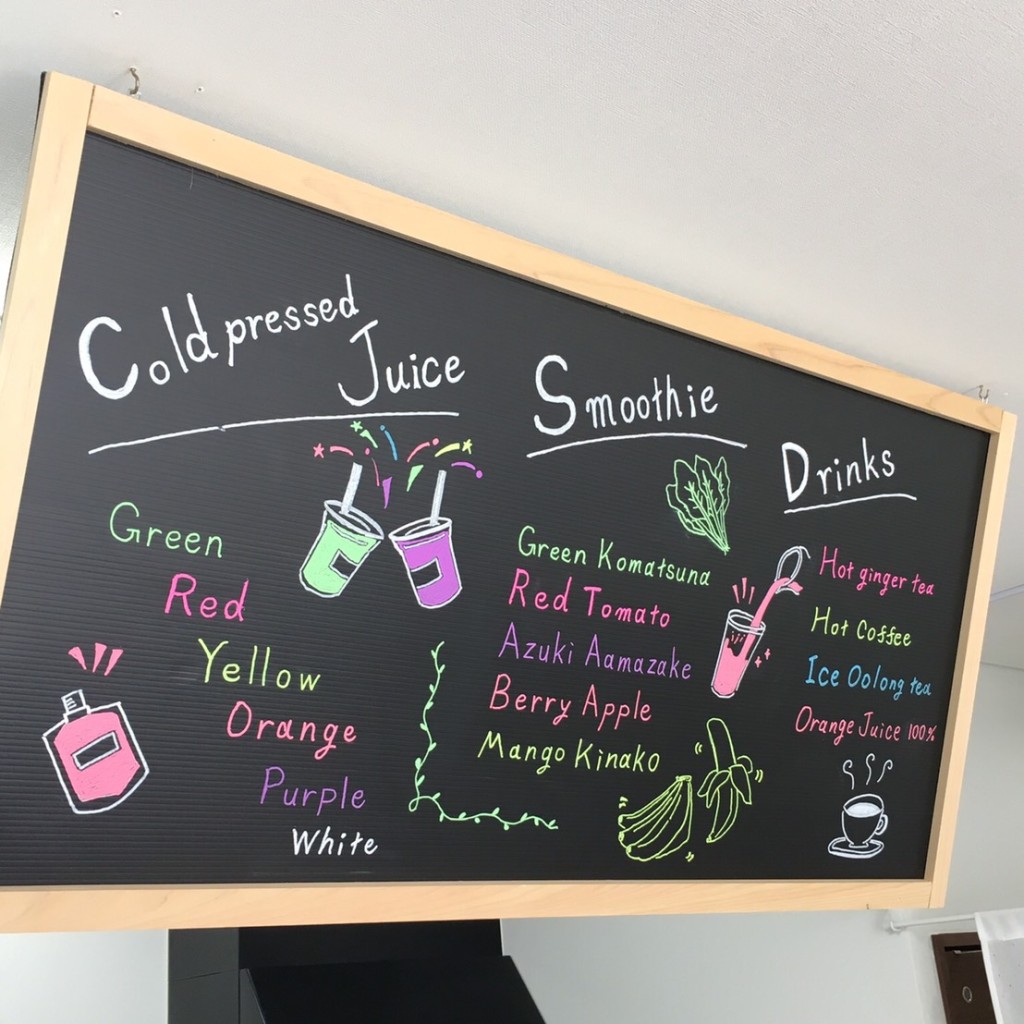 Cold pressed
Juice
Green
Red
Yellow
Orange
Purple
White
Smoothie
Green Komatsuna
Red Tomato
Azuki Aamazake
Berry Apple
Mango Kinako
Drinks
Hot ginger tea
Hot Coffee
Ice Oolong tea
Orange Juice 100%